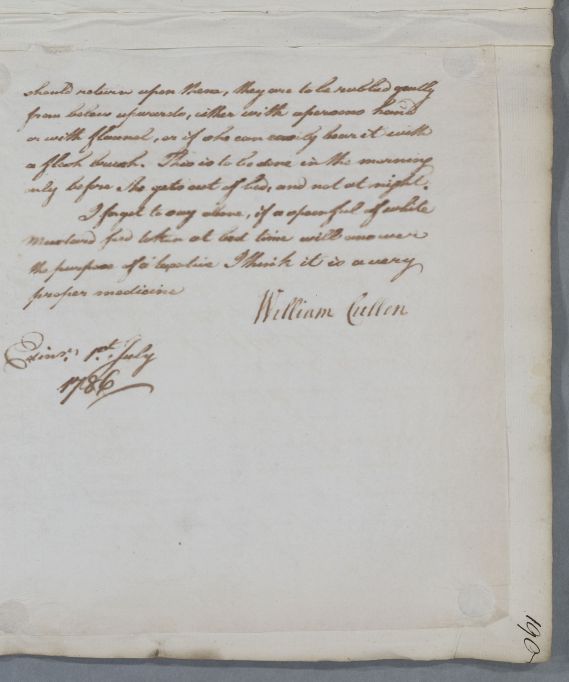 should return upon them, they are to be rubbed gently
from below upwards, either with a persons hand
or with flannel, or if she can easily bear it with
a flesh brush. This is to be done in the morning
only before she gets out of bed, and not at night.
I forgot to say above, if a spoonful of white
mustard seed taken at bed time will answer
the purpose of a laxative I think it is a very
proper medicine
William Cullen
Edinr. 1st. July
1786
190